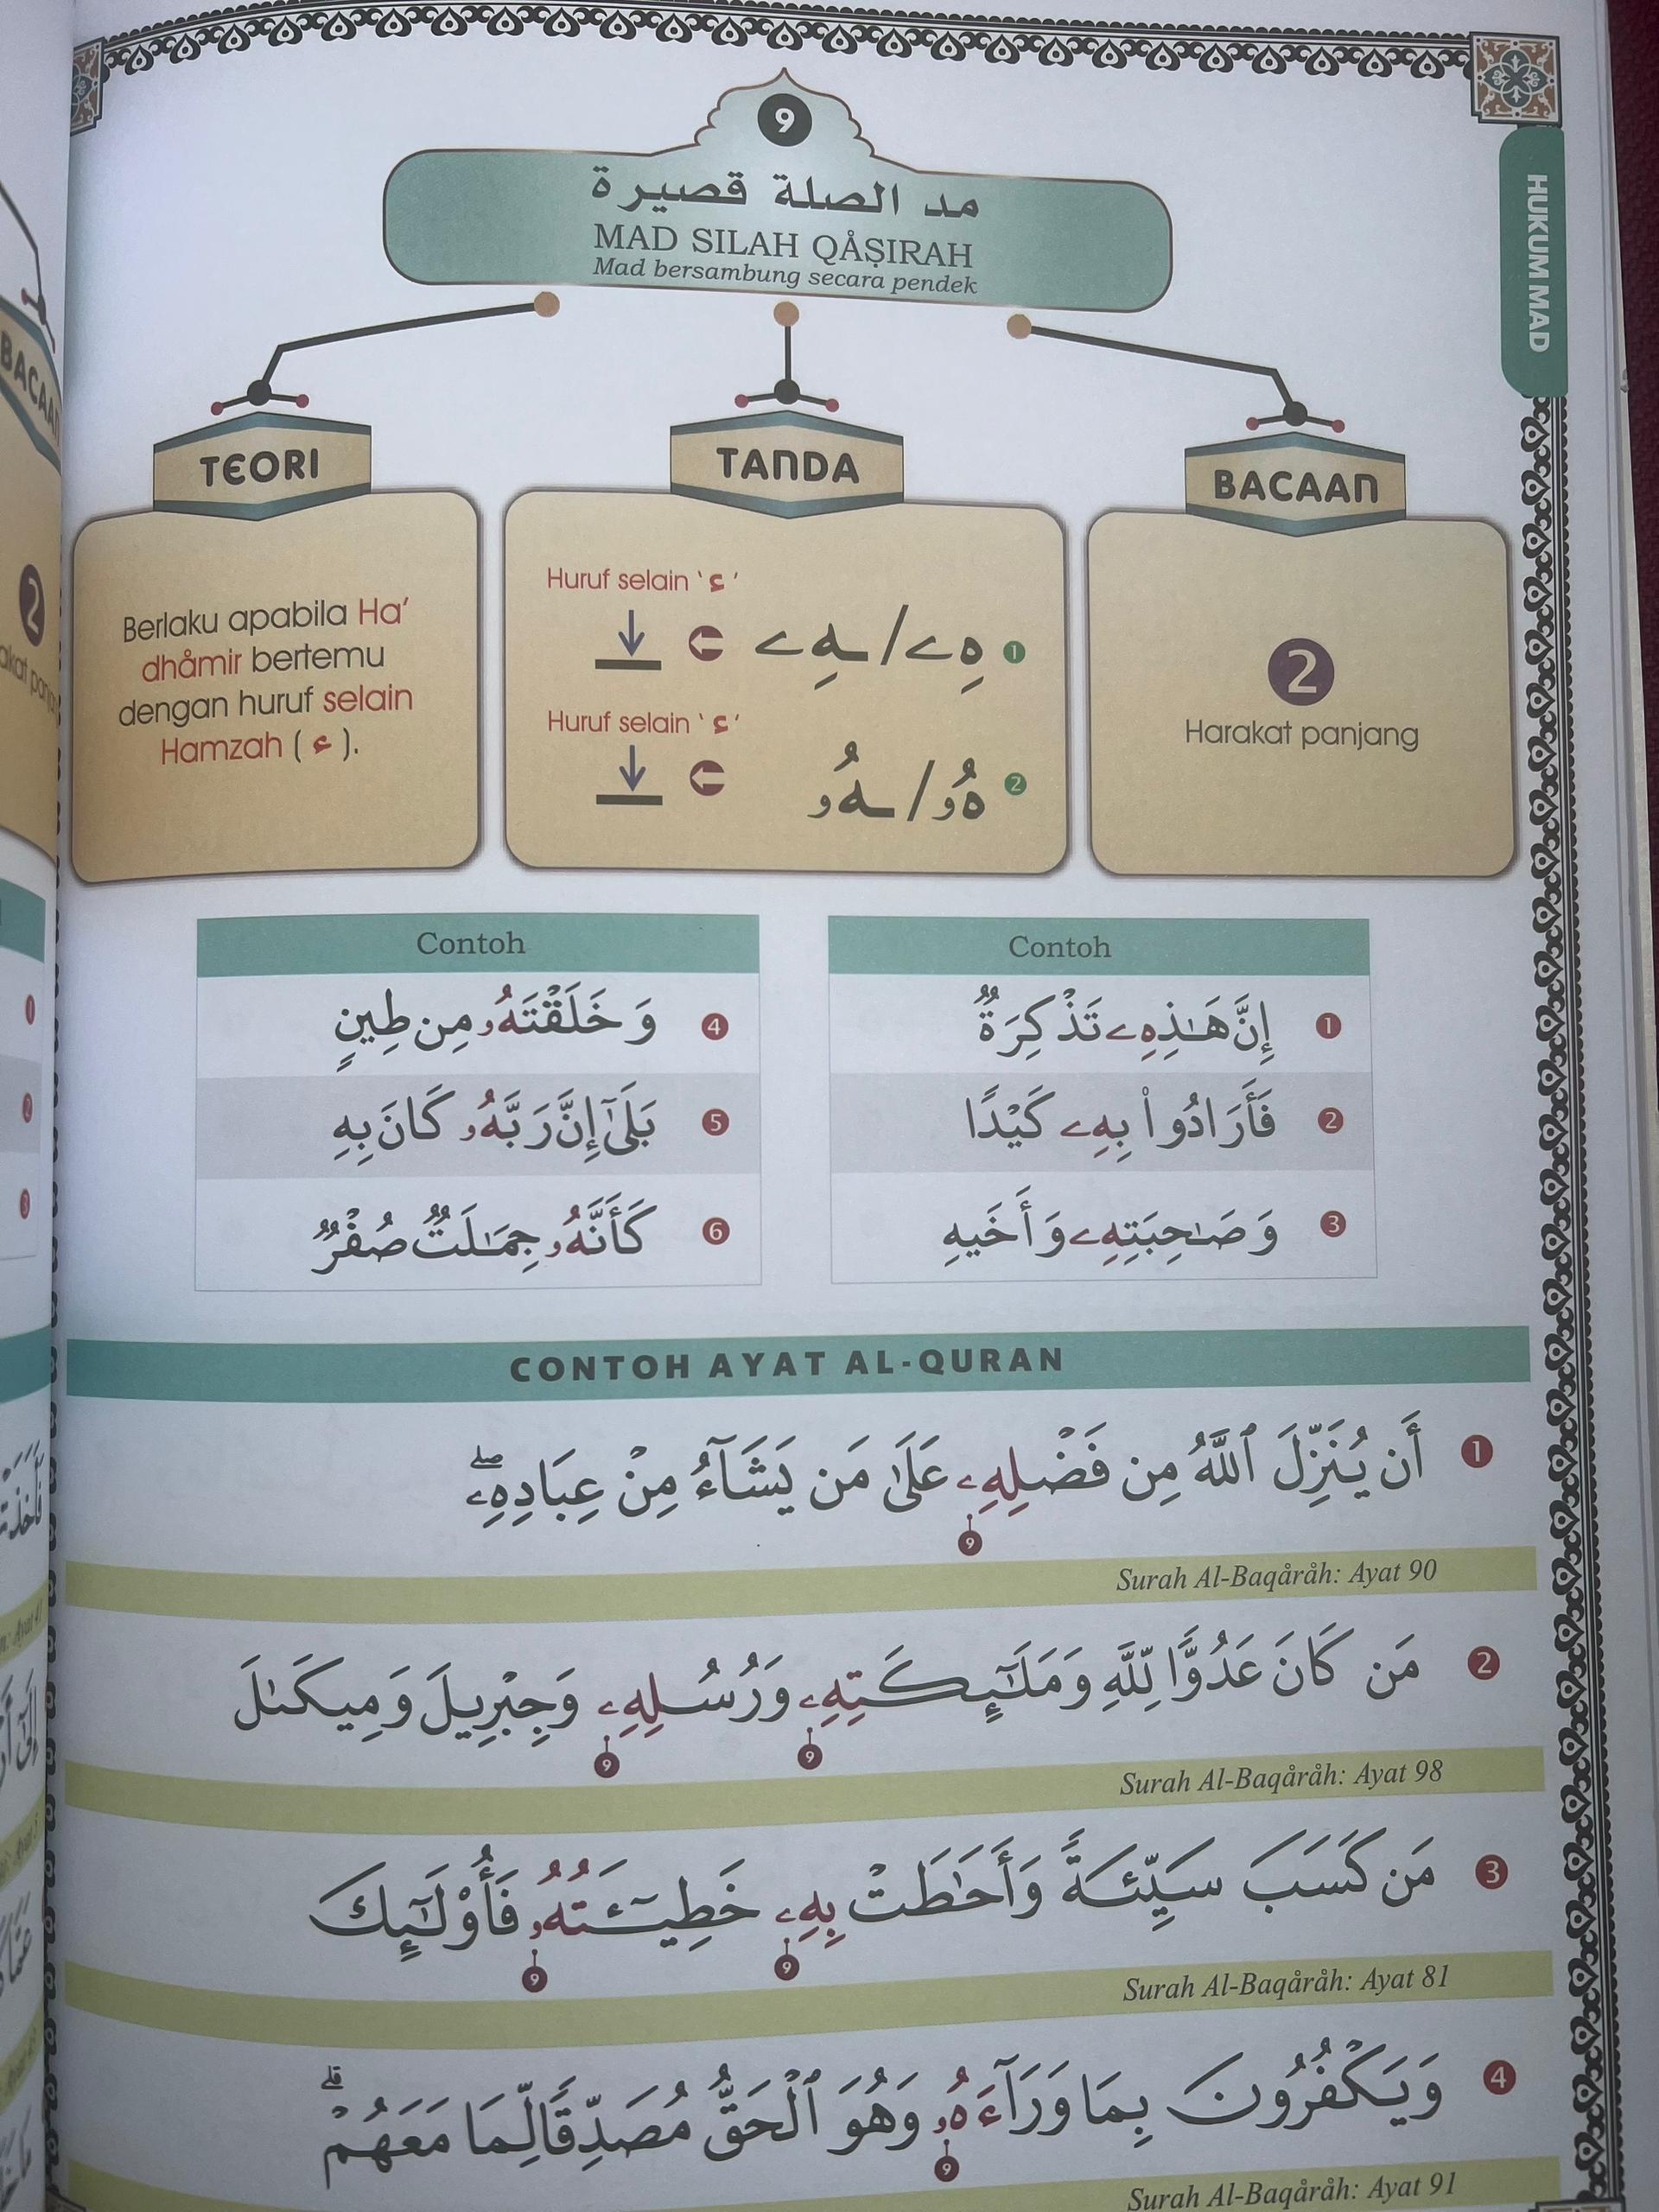 9
مد الصلة قصيرة
MAD SILAH QÅṢIRAH
Mad bersambung secara pendek
HUKUM MAD
TEORI
Berlaku apabila Ha'
dhåmir bertemu
dengan huruf selain
Hamzah ( ء ).
TANDA
Huruf selain ' ء '
1 هِۦ / ـهِۦ
Huruf selain ' ء '
2 هُۥ / ـهُۥ
BACAAN
2
Harakat panjang
Contoh
1 إِنَّ هَـٰذِهِۦ تَذْكِرَةٌ
2 فَأَرَادُوا۟ بِهِۦ كَيْدًا
3 وَصَـٰحِبَتِهِۦ وَأَخِيهِ
Contoh
4 وَخَلَقْتَهُۥ مِن طِينٍ
5 بَلَىٰٓ إِنَّ رَبَّهُۥ كَانَ بِهِ
6 كَأَنَّهُۥ جِمَـٰلَتٌ صُفْرٌ
CONTOH AYAT AL-QURAN
1 أَن يُنَزِّلَ ٱللَّهُ مِن فَضْلِهِۦ عَلَىٰ مَن يَشَآءُ مِنْ عِبَادِهِۦۖ
9
Surah Al-Baqåråh: Ayat 90
2 مَن كَانَ عَدُوًّا لِّلَّهِ وَمَلَـٰٓئِكَتِهِۦ وَرُسُلِهِۦ وَجِبْرِيلَ وَمِيكَىٰلَ
9 9
Surah Al-Baqåråh: Ayat 98
3 مَن كَسَبَ سَيِّئَةً وَأَحَـٰطَتْ بِهِۦ خَطِيٓـَٔتُهُۥ فَأُو۟لَـٰٓئِكَ
9 9
Surah Al-Baqåråh: Ayat 81
4 وَيَكْفُرُونَ بِمَا وَرَآءَهُۥ وَهُوَ ٱلْحَقُّ مُصَدِّقًا لِّمَا مَعَهُمْۗ
9
Surah Al-Baqåråh: Ayat 91